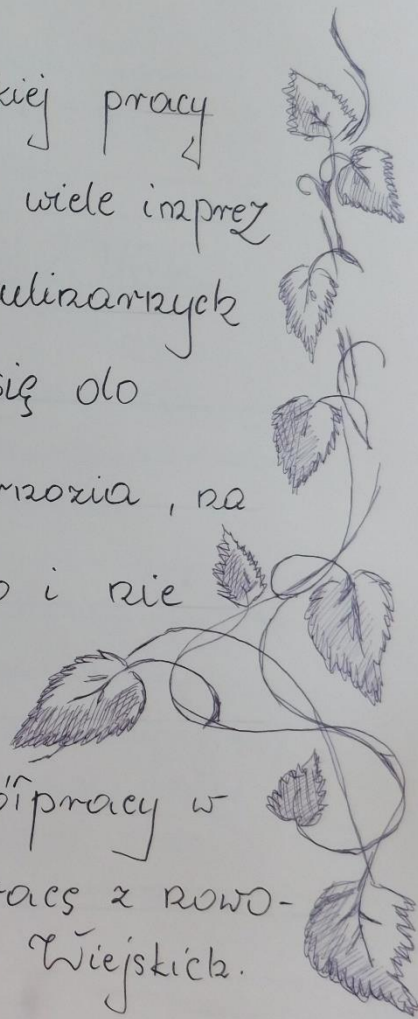 kiej pracy
wiele imprez
ulinarnych
się do
rozozia, na
o i nie
ółpracy w
racę z nowo-
Wiejskich.